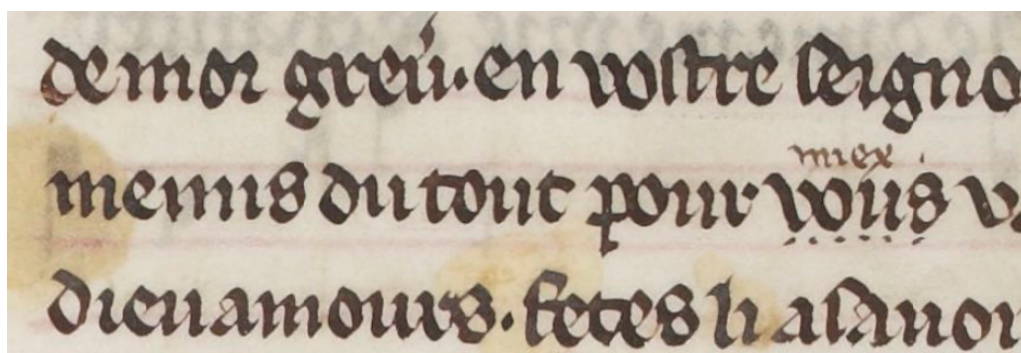 de moi greu· en vostre seigno
miex
me mis du tout pour vous v
dieu amours · fetes li a sauoi